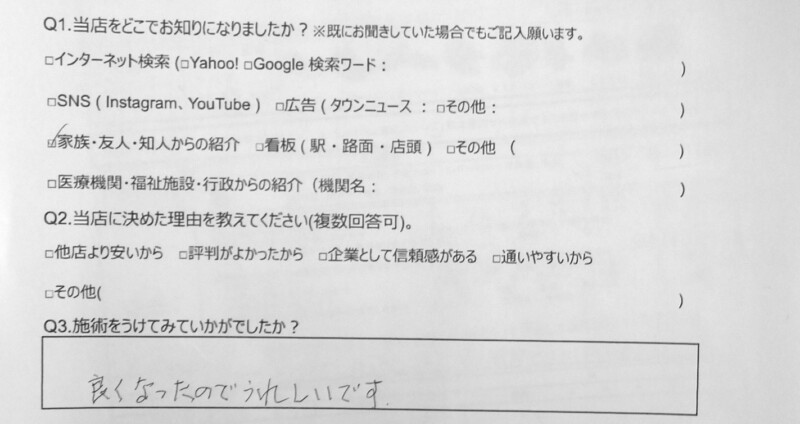 Q1.当店をどこでお知りになりましたか？※既にお聞きしていた場合でもご記入願います。
□インターネット検索 (□Yahoo! □Google 検索ワード： )
□SNS ( Instagram、YouTube ) □広告 ( タウンニュース ： □その他： )
☑家族・友人・知人からの紹介 □看板 ( 駅・路面・店頭 ) □その他 ( )
□医療機関・福祉施設・行政からの紹介（機関名： )
Q2.当店に決めた理由を教えてください(複数回答可)。
□他店より安いから □評判がよかったから □企業として信頼感がある □通いやすいから
□その他( )
Q3.施術をうけてみていかがでしたか？
良くなったのでうれしいです.